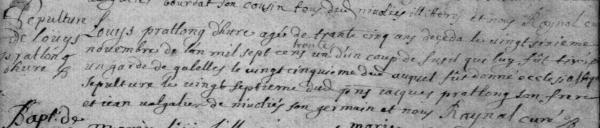 bourdat son cousin tous dud nicules illiterés et nous Raynal curé
Sepulture de Louys pratlong dhure
Louys pratlong dhure agé de trante cinq ans deceda le vingt sixieme
novembre de lan mil sept cens un dun coup de fusil que luy fût tiré
un garde de gabelles le vingt cinquieme dud auquel fût donné eccles
sepulture le vingt septieme dud pns Jacques pratlong son frere
et jean valgalier de nicules son germain et nous Raynal curé
Bapt. de